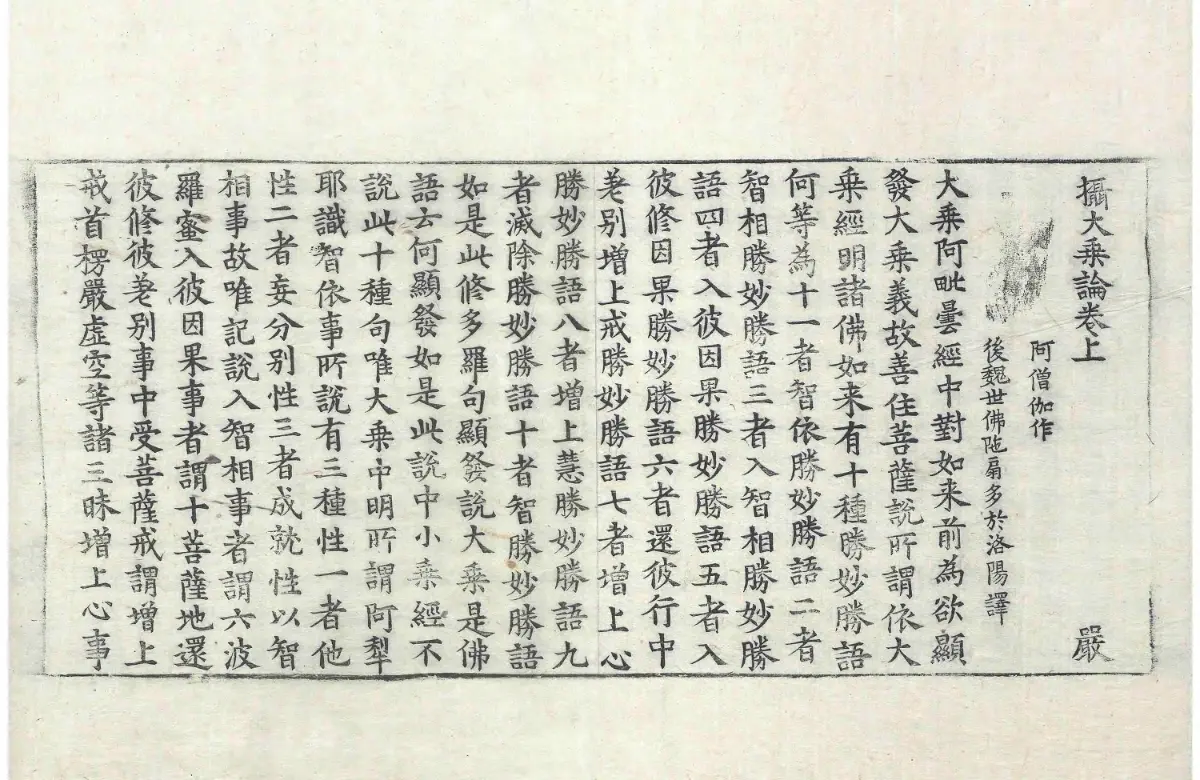 攝大乘論卷上 嚴
阿僧伽作
後魏世佛陁扇多於洛陽譯
大乘阿毗曇經中對如来前為欲顯
發大乘義故善住菩薩說所謂依大
乘經明諸佛如来有十種勝妙勝語
何等為十一者智依勝妙勝語二者
智相勝妙勝語三者入智相勝妙勝
語四者入彼因果勝妙勝語五者入
彼修因果勝妙勝語六者還彼行中
差别增上戒勝妙勝語七者增上心
勝妙勝語八者增上慧勝妙勝語九
者滅除勝妙勝語十者智勝妙勝語
如是此修多羅句顯發說大乘是佛
語云何顯發如是此說中小乘經不
說此十種句唯大乘中明所謂阿犁
耶識智依事所說有三種性一者他
性二者妄分别性三者成就性以智
相事故唯記說入智相事者謂六波
羅蜜入彼因果事者謂十菩薩地還
彼修彼差别事中受菩薩戒謂增上
戒首楞嚴虛空等諸三昧增上心事